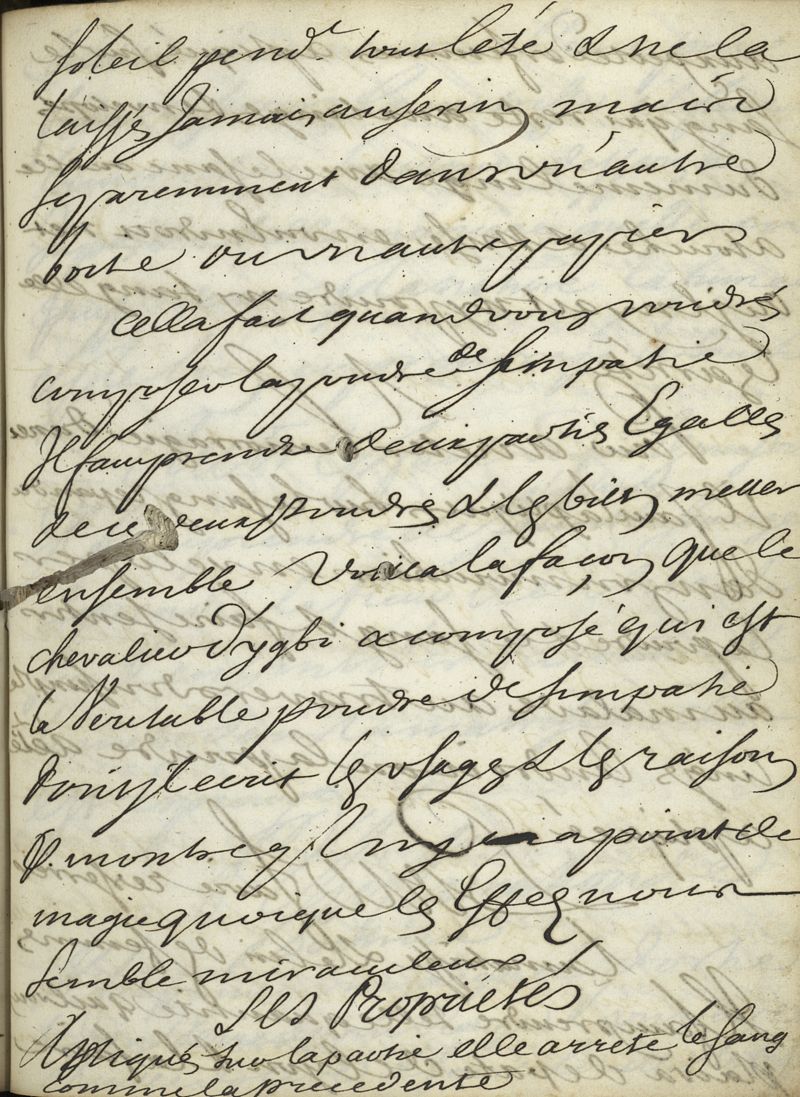 soleil pend.t tout leté & ne la
laissés Jamais au serin mais
separemment dans un autre
boite ou un autre papier
cella fait quand vous voudrés
composer la poudre de simpatie
Il faut prendre deux partis Egalles
de ce deux poudres & les bien metter
ensemble voilla la façon que le
chevalier d'ygbi a composé qui est
la Veritable poudre de simpatie
dont il ecrit les usages & les raison
& montre q'il n'y a point de
magie quoique les Effes nous
semble miraculeux
Les Proprietés
Apliqués sur la partie elle arrete le sang
comme la precedente